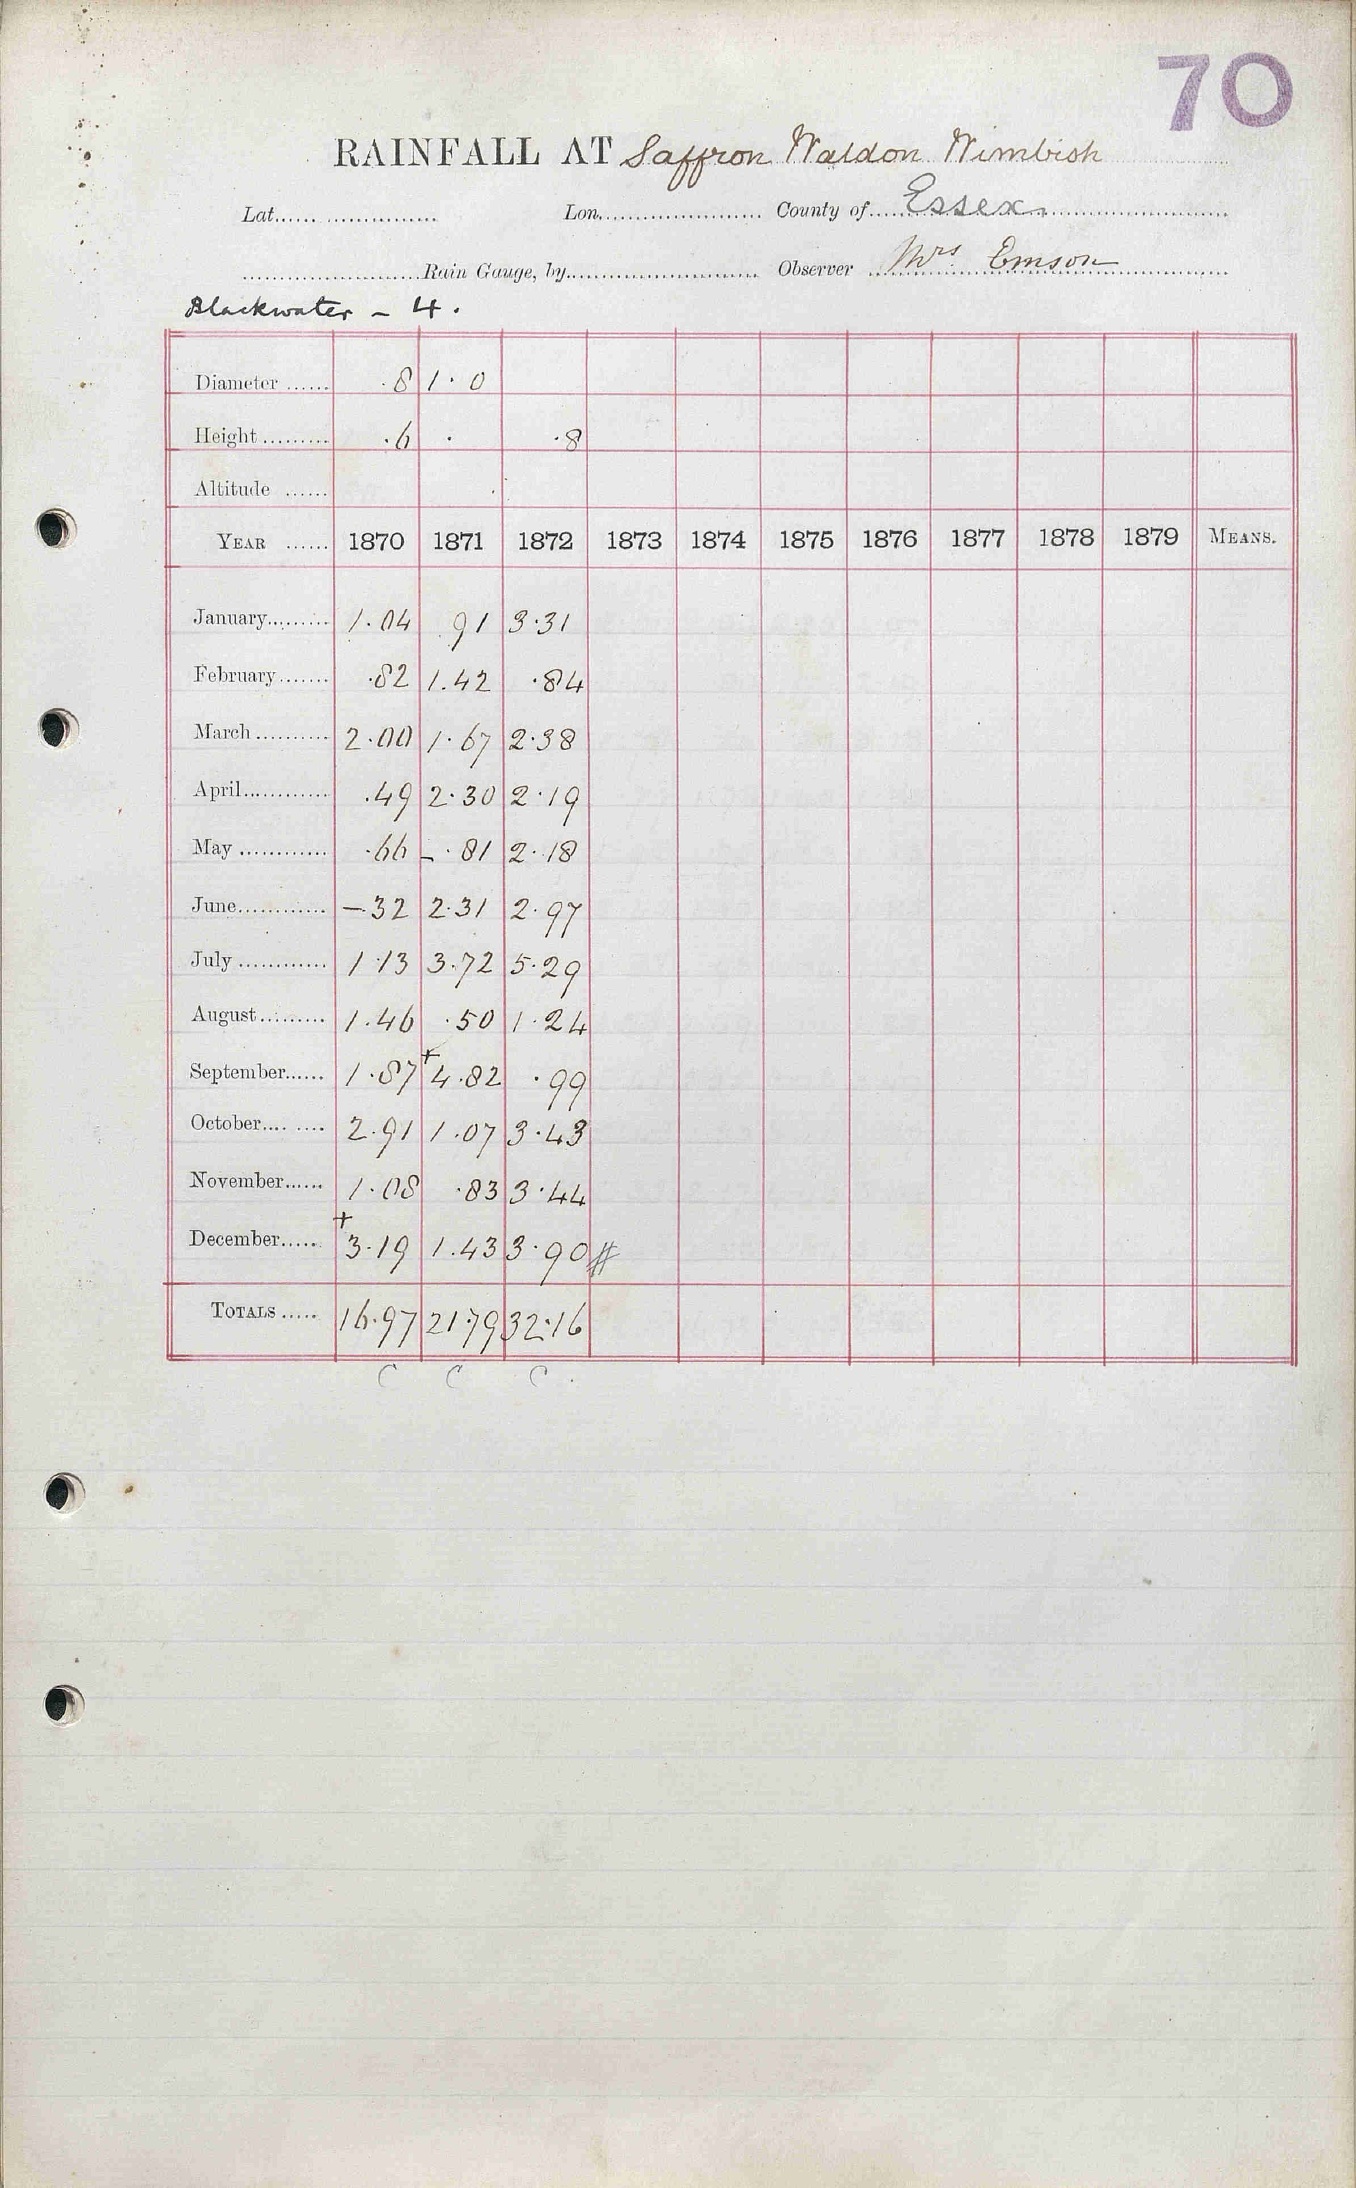 70
RAINFALL AT Saffron Waldon Wimbish
Lat. Lon. County of Essex.
Rain Gauge, by Observer Mrs Emson
Blackwater - 4.
Diameter .8 1.0
Height .6 . .8
Altitude
YEAR 1870 1871 1872 1873 1874 1875 1876 1877 1878 1879 MEANS.
January 1.04 91 3.31
February .82 1.42 .84
March 2.00 1.67 2.38
April .49 2.30 2.19
May .66 -.81 2.18
June -32 2.31 2.97
July 1.13 3.72 5.29
August 1.46 .50 1.24
September 1.87 +4.82 .99
October 2.91 1.07 3.43
November 1.08 .83 3.44
December +3.19 1.43 3.90 #
TOTALS 16.97 21.79 32.16
C C C .